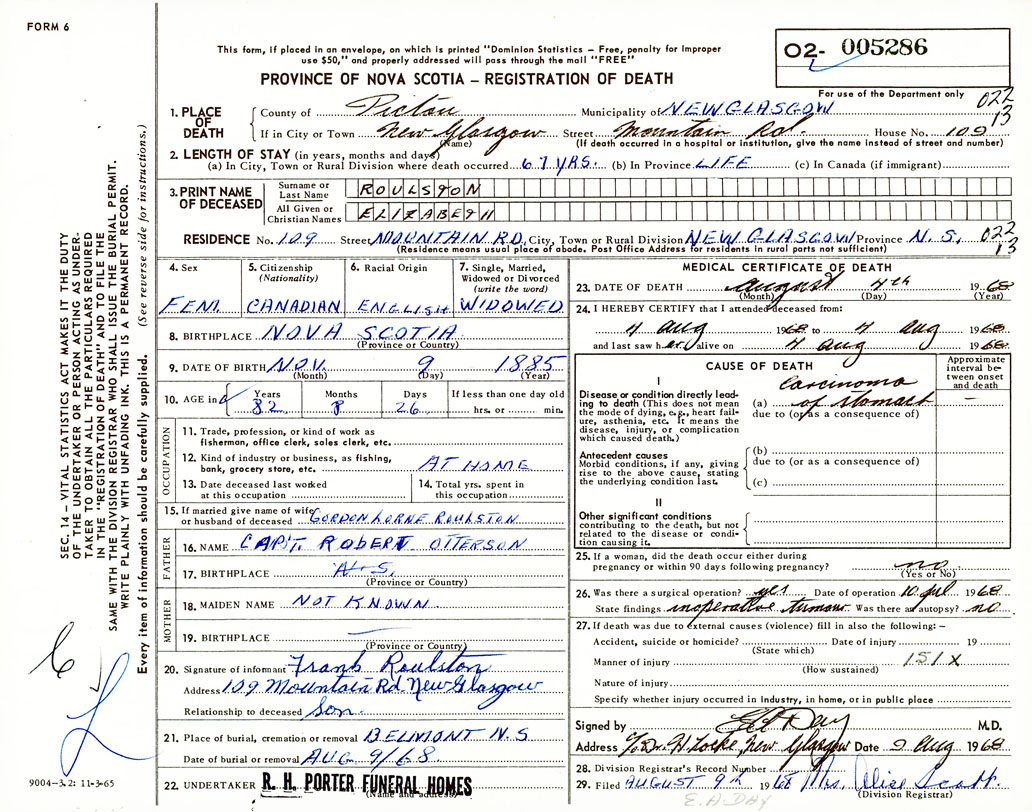 FORM 6
This form, if placed in an envelope, on which is printed "Dominion Statistics – Free, penalty for improper
use $50," and properly addressed will pass through the mail "FREE"
PROVINCE OF NOVA SCOTIA – REGISTRATION OF DEATH
02- 005286
For use of the Department only
022
13
1. PLACE OF DEATH
County of Pictou Municipality of NEW GLASGOW
If in City or Town New Glasgow Street Mountain Rd. House No. 109
(Name) (If death occurred in a hospital or institution, give the name instead of street and number)
2. LENGTH OF STAY (in years, months and days)
(a) In City, Town or Rural Division where death occurred 67 YRS. (b) In Province LIFE (c) In Canada (if immigrant)
3. PRINT NAME OF DECEASED
Surname or Last Name ROULSTON
All Given or Christian Names ELIZABETH
RESIDENCE No. 109 Street MOUNTAIN RD. City, Town or Rural Division NEW GLASGOW Province N.S. 022
13
(Residence means usual place of abode. Post Office Address for residents in rural parts not sufficient)
4. Sex
FEM.
5. Citizenship
(Nationality)
CANADIAN
6. Racial Origin
ENGLISH
7. Single, Married,
Widowed or Divorced
(write the word)
WIDOWED
8. BIRTHPLACE NOVA SCOTIA
(Province or Country)
9. DATE OF BIRTH NOV. 9 1885
(Month) (Day) (Year)
10. AGE in
Years 82
Months 8
Days 26
If less than one day old
hrs. or min.
OCCUPATION
11. Trade, profession, or kind of work as
fisherman, office clerk, sales clerk, etc.
12. Kind of industry or business, as fishing,
bank, grocery store, etc. AT HOME
13. Date deceased last worked
at this occupation
14. Total yrs. spent in
this occupation
15. If married give name of wife
or husband of deceased GORDON LORNE ROULSTON
FATHER
16. NAME CAPT. ROBERT OTTERSON
17. BIRTHPLACE N.S.
(Province or Country)
MOTHER
18. MAIDEN NAME NOT KNOWN
19. BIRTHPLACE —
(Province or Country)
20. Signature of informant Frank Roulston
Address 109 Mountain Rd. New Glasgow
Relationship to deceased Son.
21. Place of burial, cremation or removal BELMONT N.S
Date of burial or removal AUG 9/68
22. UNDERTAKER R. H. PORTER FUNERAL HOMES
(Name and address)
MEDICAL CERTIFICATE OF DEATH
23. DATE OF DEATH August 4th 1968
(Month) (Day) (Year)
24. I HEREBY CERTIFY that I attended deceased from:
4 Aug 1968 to 4 Aug 1968
and last saw her alive on 4 Aug 1968
CAUSE OF DEATH
Approximate
interval be-
tween onset
and death
I
Disease or condition directly lead-
ing to death (This does not mean
the mode of dying, e.g., heart fail-
ure, asthenia, etc. It means the
disease, injury, or complication
which caused death.)
Carcinoma
(a) of stomach —
due to (or as a consequence of)
Antecedent causes
Morbid conditions, if any, giving
rise to the above cause, stating
the underlying condition last.
(b)
due to (or as a consequence of)
(c)
II
Other significant conditions
contributing to the death, but not
related to the disease or condi-
tion causing it.
25. If a woman, did the death occur either during
pregnancy or within 90 days following pregnancy? no
(Yes or No)
26. Was there a surgical operation? yes Date of operation 10 Jul 1968
State findings inoperative tumour Was there an autopsy? no
27. If death was due to external causes (violence) fill in also the following: –
Accident, suicide or homicide? Date of injury 19
(State which)
Manner of injury 151 X
(How sustained)
Nature of injury
Specify whether injury occurred in industry, in home, or in public place
Signed by Day M.D.
Address H Locke, New Glasgow Date 9 Aug 1968
28. Division Registrar's Record Number
29. Filed AUGUST 9th 1968 Mrs. Alice Scott.
(Division Registrar)
E. A. DAY
SEC. 14 – VITAL STATISTICS ACT MAKES IT THE DUTY
OF THE UNDERTAKER OR PERSON ACTING AS UNDER-
TAKER TO OBTAIN ALL THE PARTICULARS REQUIRED
IN THE "REGISTRATION OF DEATH" AND TO FILE THE
SAME WITH THE DIVISION REGISTRAR WHO SHALL ISSUE THE BURIAL PERMIT.
WRITE PLAINLY WITH UNFADING INK. THIS IS A PERMANENT RECORD.
Every item of information should be carefully supplied. (See reverse side for instructions.)
9004–3.2: 11-3-65